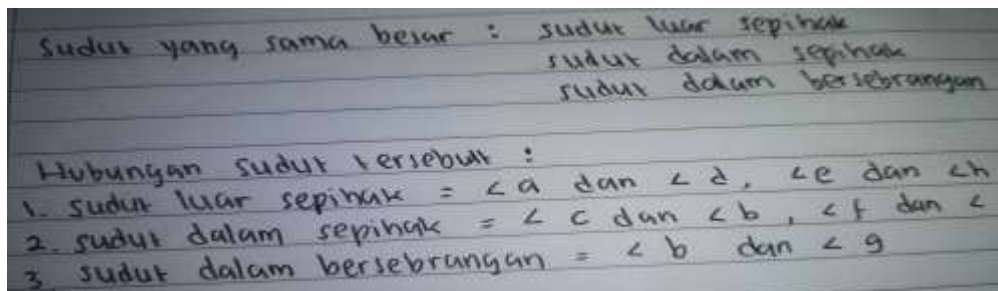 Sudut yang sama besar : sudut luar sepihak
sudut dalam sepihak
sudut dalam bersebrangan
Hubungan sudut tersebut :
1. sudut luar sepihak = ∠a dan ∠d, ∠e dan ∠h
2. sudut dalam sepihak = ∠c dan ∠b, ∠f dan ∠
3. sudut dalam bersebrangan = ∠b dan ∠g